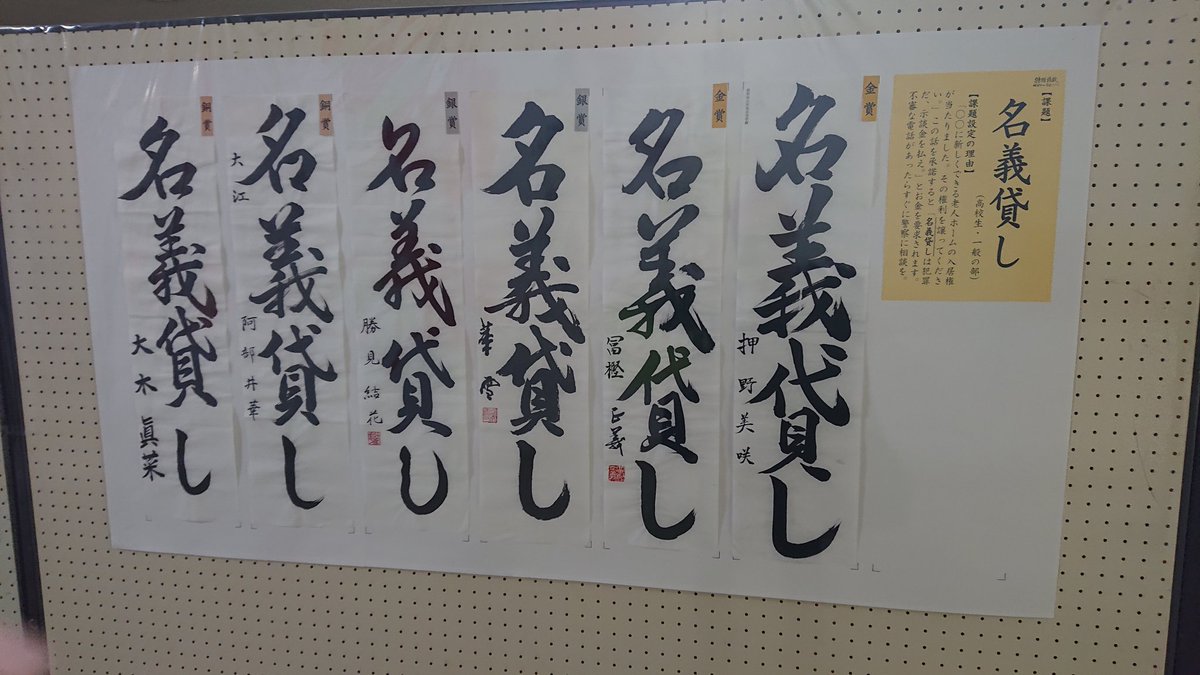 【課題】
名義貸し
(高校生・一般の部)
【課題設定の理由】
「〇〇に新しくできる老人ホームの入居権
が当たりました。その権利を譲ってくださ
い。」この話を承諾すると「名義貸しは犯罪
だ、示談金を払え。」とお金を要求されます。
不審な電話があったらすぐに警察に相談を。
金賞
名義貸し
押野美咲
金賞
名義貸し
冨樫正義
銀賞
名義貸し
華雪
銀賞
名義貸し
勝見結花
銅賞
名義貸し
大江
阿部井華
銅賞
名義貸し
大木眞菜